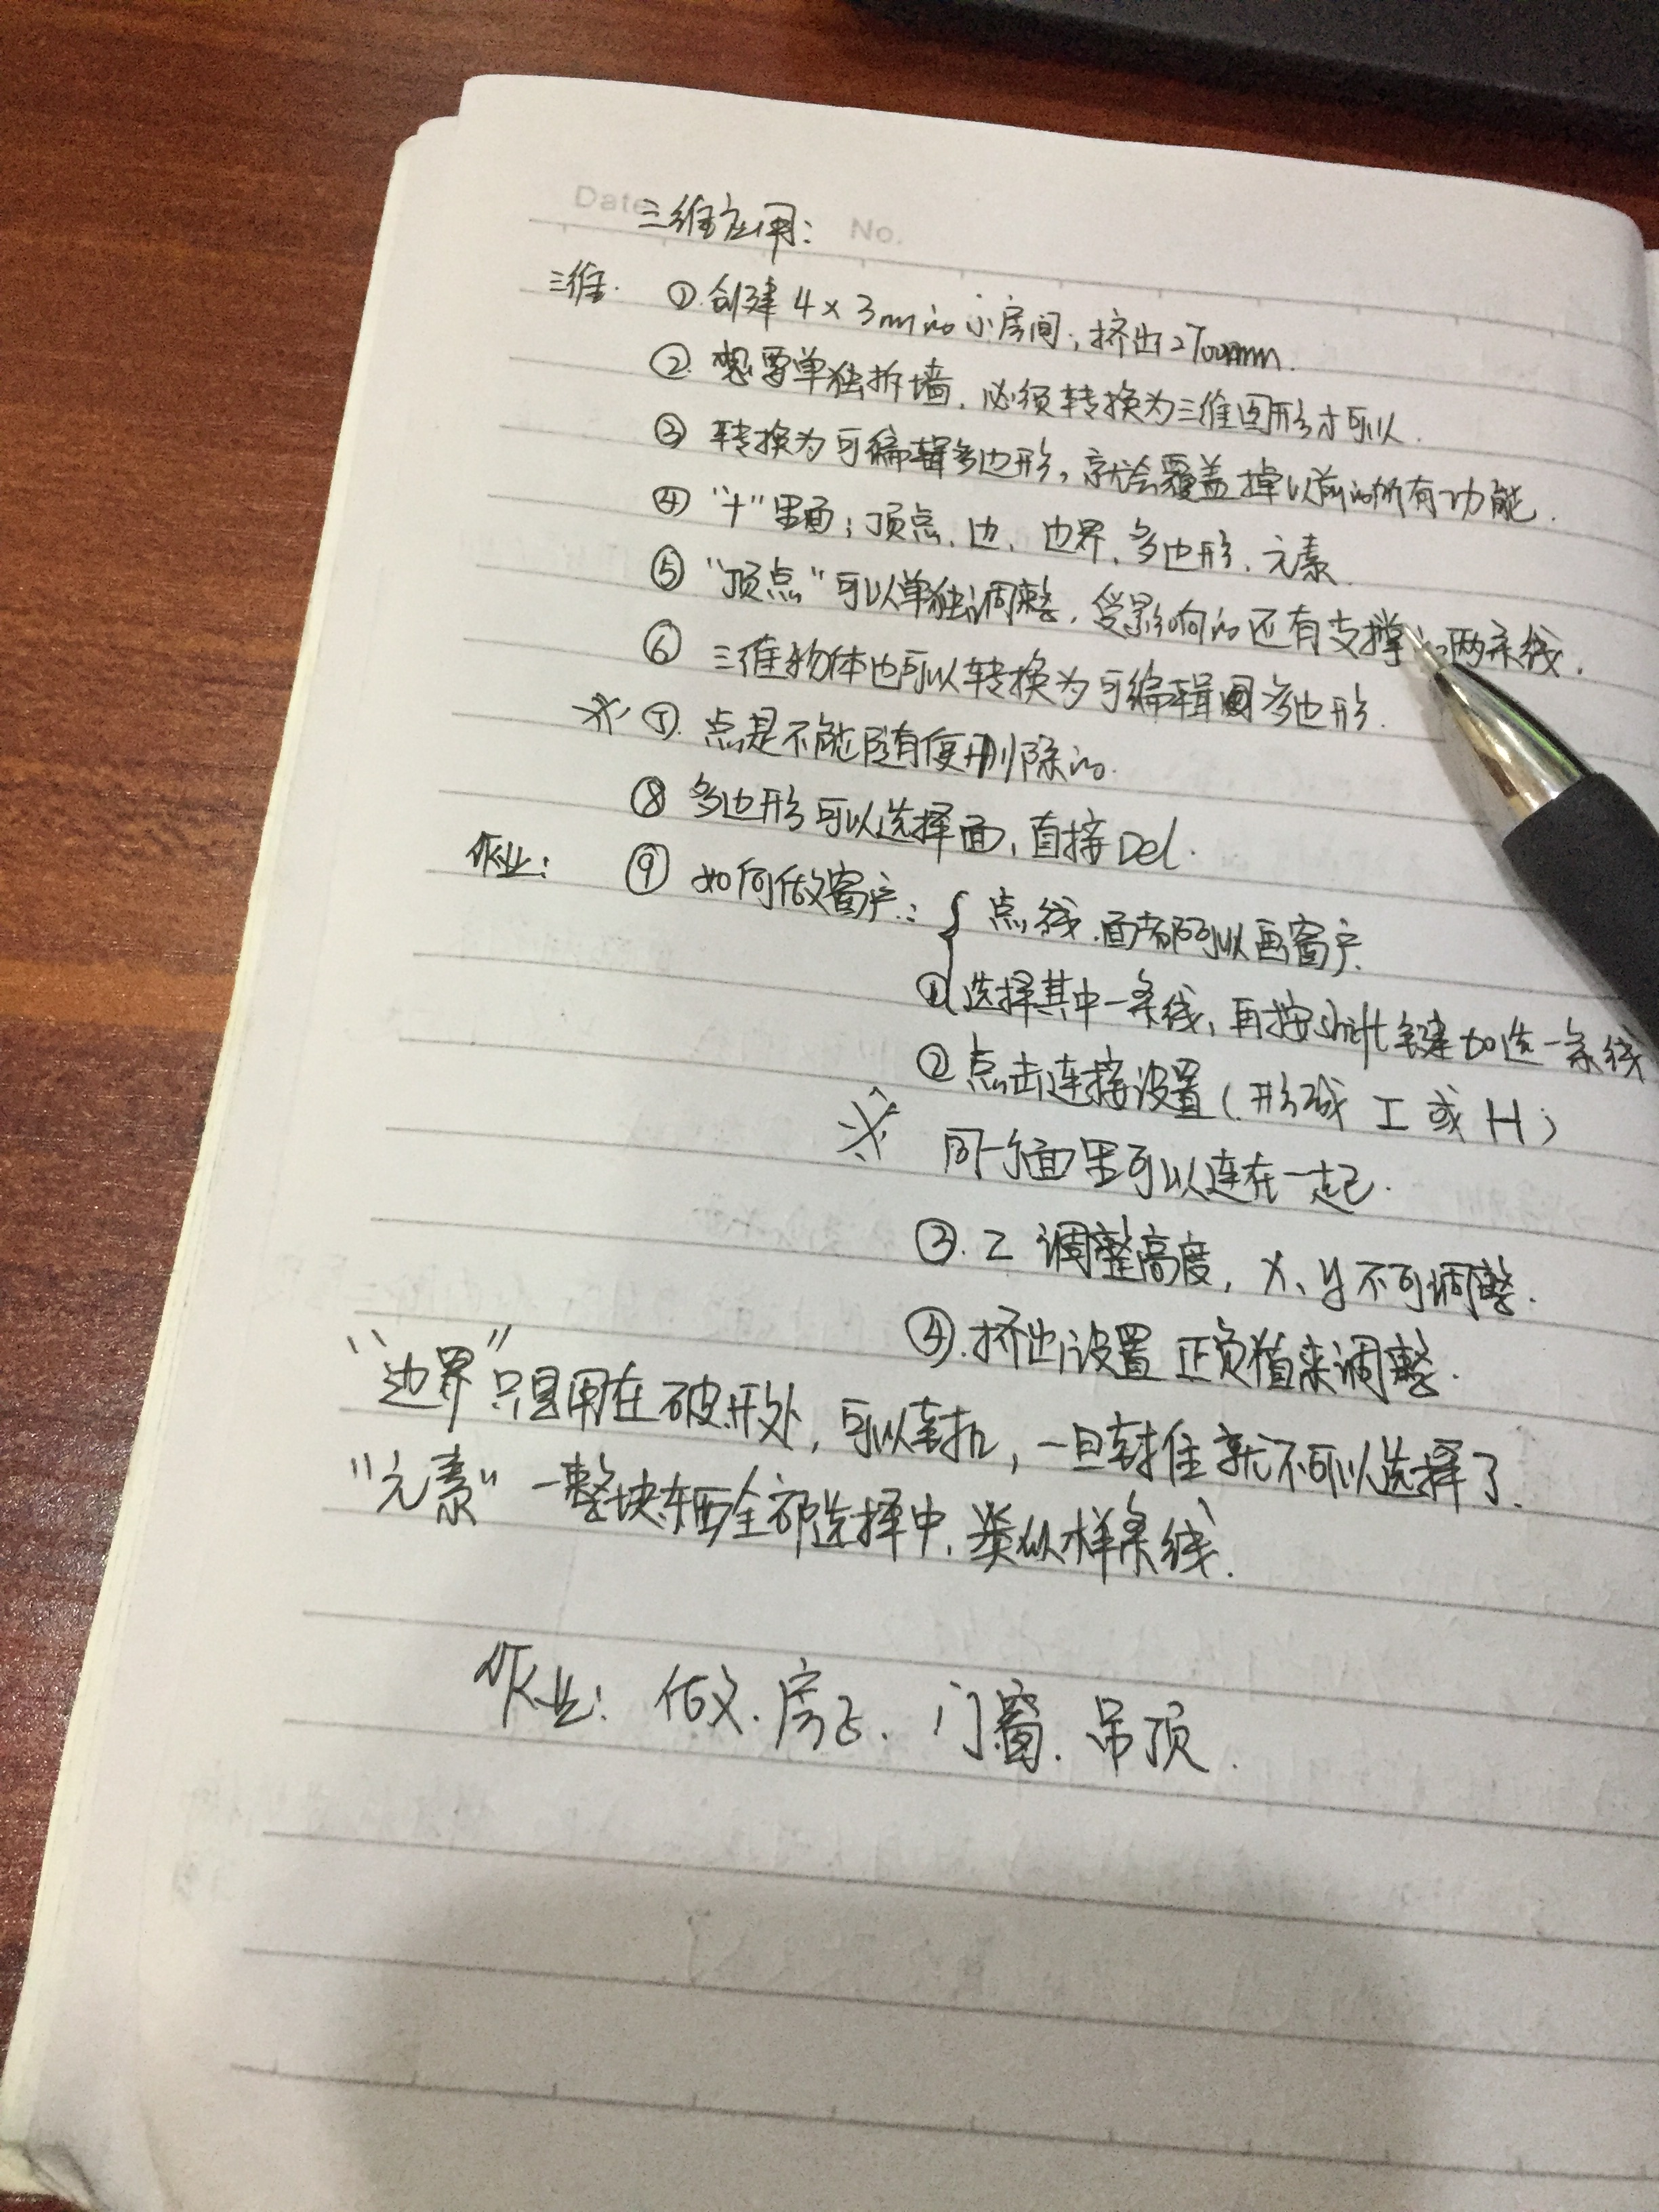 Date
No.
三维应用：
三维. ①. 创建 4×3m的小房间, 挤出2700mm.
②. 想要单独拆墙, 必须转换为三维图形才可以.
③ 转换为可编辑多边形, 就会覆盖掉以前的所有功能.
④ "十"里面; 顶点、边、边界、多边形、元素.
⑤ "顶点"可以单独调整, 受影响的还有支撑的两条线.
⑥ 三维物体也可以转换为可编辑多边形.
※ ⑦. 点是不能随便删除的.
⑧ 多边形可以选择面, 直接Del.
作业: ⑨ 如何做窗户: { 点、线、面都可以画窗户.
①选择其中一条线, 再按shift键加选一条线
②点击连接设置(形成 工 或 H)
※ 同一个面里可以连在一起.
③. Z 调整高度, X、y不可调整.
④. 挤出设置 正负值来调整.
"边界"只是用在破开处, 可以封口, 一旦封住就不可以选择了.
"元素" 一整块东西全部选择中, 类似样条线.
作业: 做. 房子. 门窗. 吊顶.